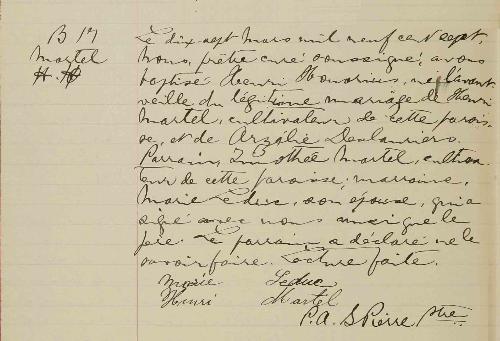 B 17
Martel
H. H
Le dix sept mars mil neuf cent sept,
Nous, prêtre curé soussigné avons
baptisé Henri Honorius, né l'avant
veille du légitime mariage de Henri
Martel, cultivateur de cette parois-
se, et de Arzélie Deslauriers.
Parrain, Timothée Martel, cultiva-
teur de cette paroisse; marraine,
Marie Leduc, son épouse, qui a
signé avec nous ainsi que le
père. Le parrain a déclaré ne le
savoir faire. Lecture faite.
Marie Leduc
Henri Martel
P. A. St Pierre Ptre